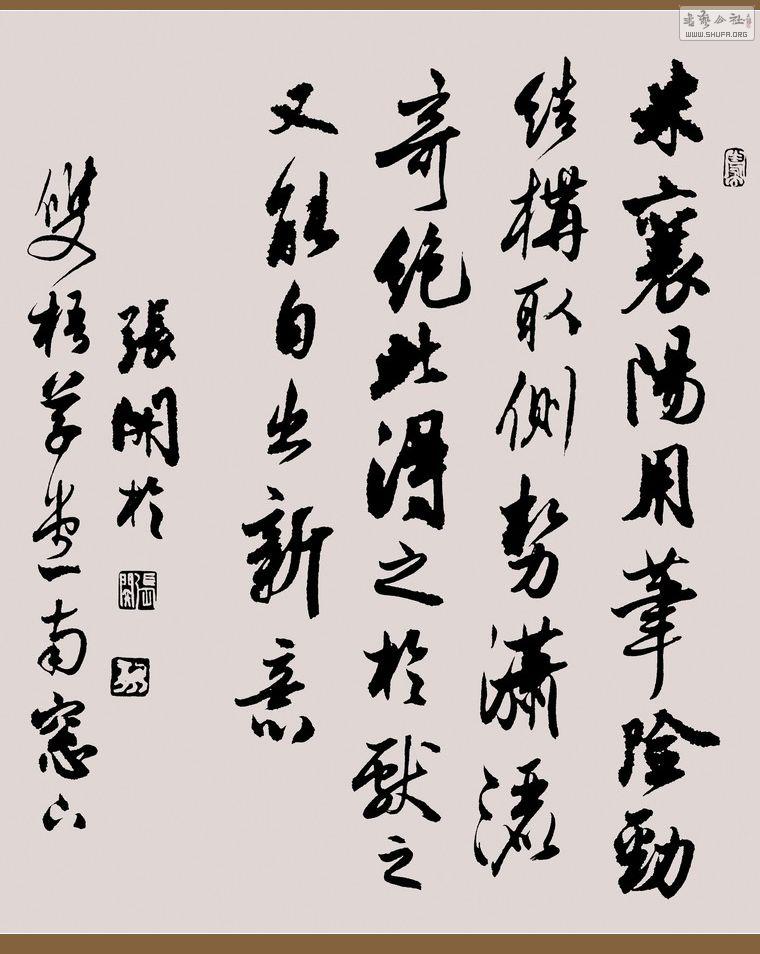 米襄陽用筆險勁
結構取側勢瀟灑
奇絕此得之於獻之
又能自出新意
張開於
雙梧草堂南窓下
書藝公社
WWW.SHUFA.ORG